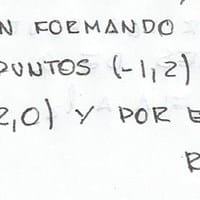 N FORMANDO
PUNTOS (-1,2)
2,0) Y POR E
R